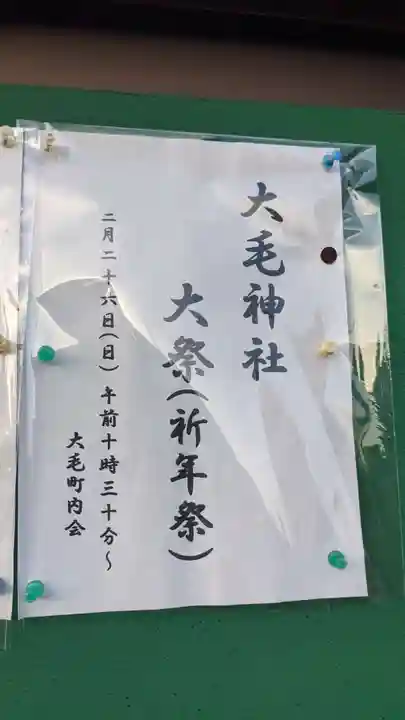 大毛神社
大祭(祈年祭)
二月二十六日(日) 午前十時三十分〜
大毛町内会